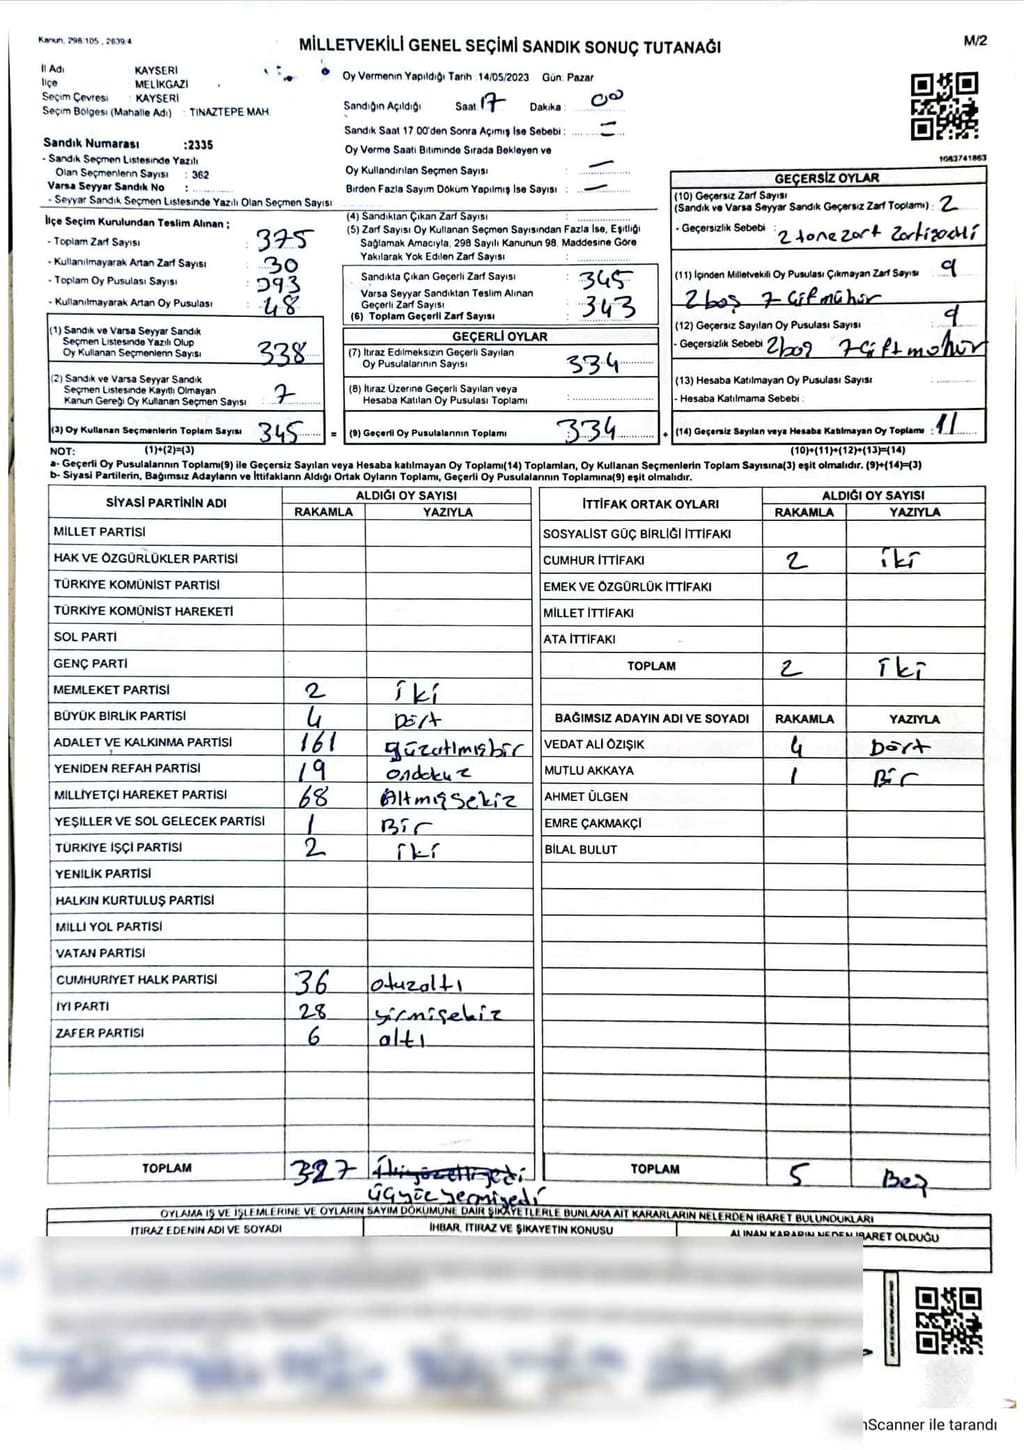 Kanun, 298/105, 2839/4
MİLLETVEKİLİ GENEL SEÇİMİ SANDIK SONUÇ TUTANAĞI
M/2
İl Adı KAYSERİ
İlçe MELİKGAZİ
Seçim Çevresi : KAYSERİ
Seçim Bölgesi (Mahalle Adı) : TINAZTEPE MAH
Sandık Numarası :2335
- Sandık Seçmen Listesinde Yazılı
Olan Seçmenlerin Sayısı : 362
Varsa Seyyar Sandık No :
- Seyyar Sandık Seçmen Listesinde Yazılı Olan Seçmen Sayısı
Oy Vermenin Yapıldığı Tarih :14/05/2023 Gün: Pazar
Sandığın Açıldığı Saat 17 Dakika : 00
Sandık Saat 17.00'den Sonra Açımış İse Sebebi :
Oy Verme Saati Bitiminde Sırada Bekleyen ve
Oy Kullandırılan Seçmen Sayısı :
Birden Fazla Sayım Döküm Yapılmış İse Sayısı : —
1083741863
İlçe Seçim Kurulundan Teslim Alınan ;
- Toplam Zarf Sayısı : 375
- Kullanılmayarak Artan Zarf Sayısı : 30
- Toplam Oy Pusulası Sayısı : 393
- Kullanılmayarak Artan Oy Pusulası : 48
(1) Sandık ve Varsa Seyyar Sandık
Seçmen Listesinde Yazılı Olup
Oy Kullanan Seçmenlerin Sayısı 338
(2) Sandık ve Varsa Seyyar Sandık
Seçmen Listesinde Kayıtlı Olmayan
Kanun Gereği Oy Kullanan Seçmen Sayısı : 7
(3) Oy Kullanan Seçmenlerin Toplam Sayısı 345 =
(4) Sandıktan Çıkan Zarf Sayısı :
(5) Zarf Sayısı Oy Kullanan Seçmen Sayısından Fazla İse, Eşitliği
Sağlamak Amacıyla, 298 Sayılı Kanunun 98. Maddesine Göre
Yakılarak Yok Edilen Zarf Sayısı :
Sandıkta Çıkan Geçerli Zarf Sayısı : 345
Varsa Seyyar Sandıktan Teslim Alınan
Geçerli Zarf Sayısı :
(6) Toplam Geçerli Zarf Sayısı : 343
GEÇERLİ OYLAR
(7) İtiraz Edilmeksizin Geçerli Sayılan
Oy Pusulalarının Sayısı 334
(8) İtiraz Üzerine Geçerli Sayılan veya
Hesaba Katılan Oy Pusulası Toplamı :
(9) Geçerli Oy Pusulalarının Toplamı 334 +
GEÇERSİZ OYLAR
(10) Geçersiz Zarf Sayısı
(Sandık ve Varsa Seyyar Sandık Geçersiz Zarf Toplamı) : 2
- Geçersizlik Sebebi : 2 tane zarf
(11) İçinden Milletvekili Oy Pusulası Çıkmayan Zarf Sayısı 9
2 boş 7 çift mühür
(12) Geçersiz Sayılan Oy Pusulası Sayısı 9
- Geçersizlik Sebebi 2 boş 7 çift mühür
(13) Hesaba Katılmayan Oy Pusulası Sayısı
- Hesaba Katılmama Sebebi :
(14) Geçersiz Sayılan veya Hesaba Katılmayan Oy Toplamı : 11
NOT: (1)+(2)=(3) (10)+(11)+(12)+(13)=(14)
a- Geçerli Oy Pusulalarının Toplamı(9) ile Geçersiz Sayılan veya Hesaba katılmayan Oy Toplamı(14) Toplamları, Oy Kullanan Seçmenlerin Toplam Sayısına(3) eşit olmalıdır. (9)+(14)=(3)
b- Siyasi Partilerin, Bağımsız Adayların ve İttifakların Aldığı Ortak Oyların Toplamı, Geçerli Oy Pusulalarının Toplamına(9) eşit olmalıdır.
SİYASİ PARTİNİN ADI ALDIĞI OY SAYISI
RAKAMLA YAZIYLA
MİLLET PARTİSİ
HAK VE ÖZGÜRLÜKLER PARTİSİ
TÜRKİYE KOMÜNİST PARTİSİ
TÜRKİYE KOMÜNİST HAREKETİ
SOL PARTİ
GENÇ PARTİ
MEMLEKET PARTİSİ 2 iki
BÜYÜK BİRLİK PARTİSİ 4 Dört
ADALET VE KALKINMA PARTİSİ 161 yüzatlmışbir
YENİDEN REFAH PARTİSİ 19 ondokuz
MİLLİYETÇİ HAREKET PARTİSİ 68 Altmışsekiz
YEŞİLLER VE SOL GELECEK PARTİSİ 1 Bir
TÜRKİYE İŞÇİ PARTİSİ 2 iki
YENİLİK PARTİSİ
HALKIN KURTULUŞ PARTİSİ
MİLLİ YOL PARTİSİ
VATAN PARTİSİ
CUMHURİYET HALK PARTİSİ 36 otuzaltı
İYİ PARTİ 28 yirmisekiz
ZAFER PARTİSİ 6 altı
TOPLAM 327
üçyüzyermiyedi
İTTİFAK ORTAK OYLARI ALDIĞI OY SAYISI
RAKAMLA YAZIYLA
SOSYALİST GÜÇ BİRLİĞİ İTTİFAKI
CUMHUR İTTİFAKI 2 iki
EMEK VE ÖZGÜRLÜK İTTİFAKI
MİLLET İTTİFAKI
ATA İTTİFAKI
TOPLAM 2 iki
BAĞIMSIZ ADAYIN ADI VE SOYADI RAKAMLA YAZIYLA
VEDAT ALİ ÖZIŞIK 4 Dört
MUTLU AKKAYA 1 Bir
AHMET ÜLGEN
EMRE ÇAKMAKÇİ
BİLAL BULUT
TOPLAM 5 Beş
OYLAMA İŞ VE İŞLEMLERİNE VE OYLARIN SAYIM DÖKÜMÜNE DAİR ŞİKAYETLERLE BUNLARA AİT KARARLARIN NELERDEN İBARET BULUNDUKLARI
İTİRAZ EDENİN ADI VE SOYADI İHBAR, İTİRAZ VE ŞİKAYETİN KONUSU ALINAN KARARIN NEDEN İBARET OLDUĞU
Scanner ile tarandı